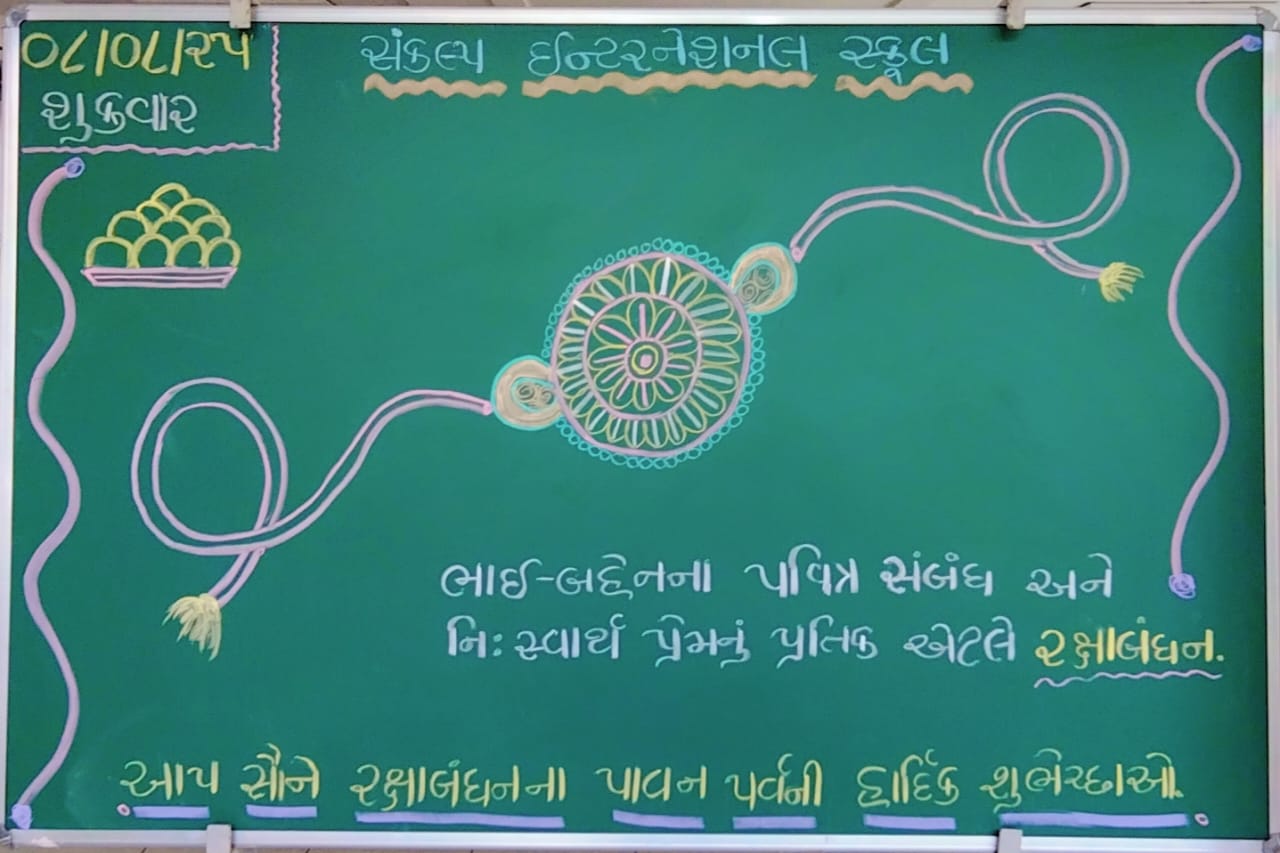 ૦૮/૦૮/૨૫
શુક્રવાર
સંકલ્પ ઈન્ટરનેશનલ સ્કૂલ
ભાઈ-બહેનના પવિત્ર સંબંધ અને
નિઃસ્વાર્થ પ્રેમનું પ્રતિક એટલે રક્ષાબંધન.
આપ સૌને રક્ષાબંધનના પાવન પર્વની હાર્દિક શુભેચ્છાઓ.